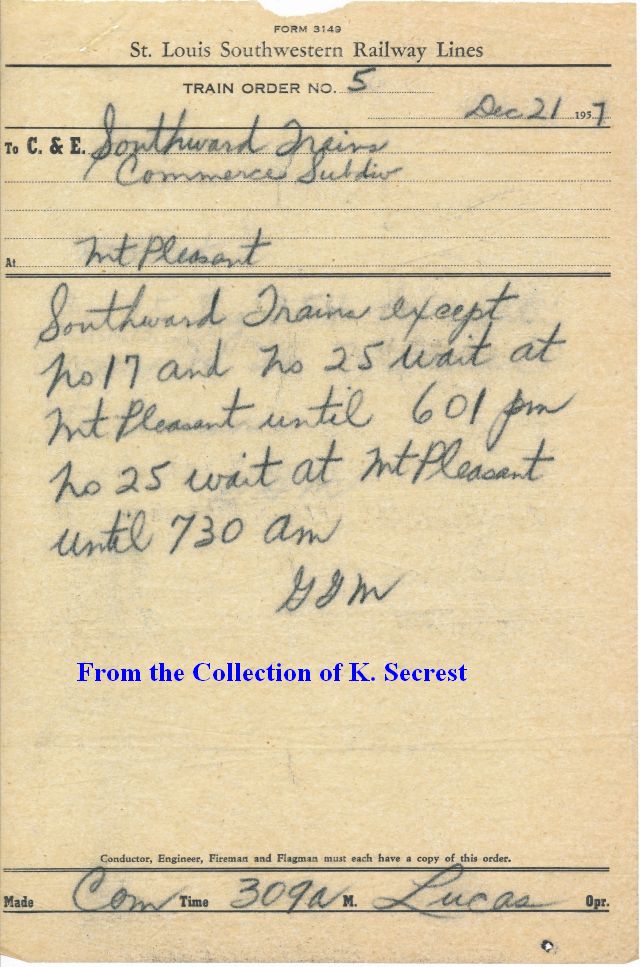 FORM 3149
St. Louis Southwestern Railway Lines
TRAIN ORDER NO. 5
Dec 21 1957
To C. & E. Southward Trains
Commerce Subdiv
At Mt Pleasant
Southward Trains except
No 17 and No 25 wait at
Mt Pleasant until 601 pm
No 25 wait at Mt Pleasant
until 730 am
GGM
From the Collection of K. Secrest
Conductor, Engineer, Fireman and Flagman must each have a copy of this order.
Made Com Time 309a M. Lucas Opr.